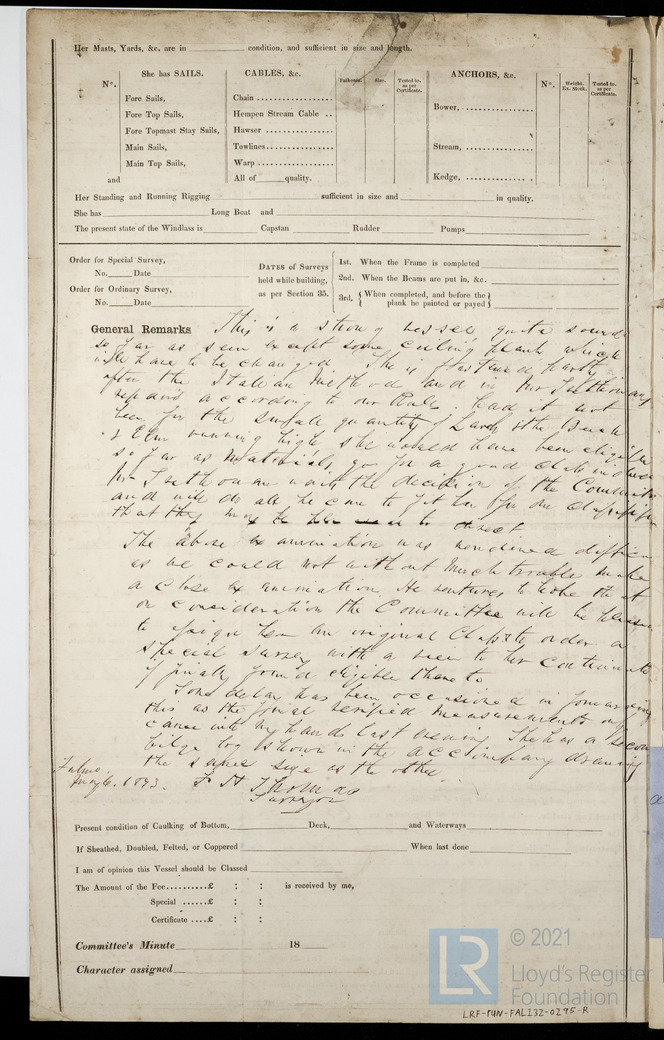 Her Masts, Yards, &c. are in condition, and sufficient in size and length.
5
She has SAILS.
CABLES, &c.
Fathoms.
Size.
Tested to, as per Certificate.
ANCHORS, &c.
Nº.
Weight. Ex. Stock.
Tested to, as per Certificate.
Nº.
Fore Sails,
Chain
Fore Top Sails,
Hempen Stream Cable
Bower,
Fore Topmast Stay Sails,
Hawser
Main Sails,
Towlines
Stream,
Main Top Sails,
Warp
and
All of quality.
Kedge,
Her Standing and Running Rigging sufficient in size and in quality.
She has Long Boat and
The present state of the Windlass is Capstan Rudder Pumps
Order for Special Survey,
No. Date
Order for Ordinary Survey,
No. Date
DATES of Surveys
held while building,
as per Section 35.
1st. When the Frame is completed
2nd. When the Beams are put in, &c.
3rd. { When completed, and before the plank be painted or payed }
General Remarks This is a strong vessel quite sound
so far as seen except some ceiling plank which
will have to be changed. She is fastened partly
after the Italian method and in
repairs according to our Rules. Had it not
been for the quantity of Larch & the Beech
& Elm running high she would have been eligible
so far as materials go for a good class
the decision of the Committee
and will do all he can to get her
that they may
The above examination was rendered
as we could not without much trouble make
a close examination. He ventures to hope that
on consideration the Committee will be
to assign her an original Class &c order a
special survey with a view to her
if finally found eligible thereto
Some delay has been occasioned in
this as the final verified measurements only
came into my hands last evening. She has a
bilge log shown in the accompany drawing
the same size as the other.
F H Thomas
Surveyor
Present condition of Caulking of Bottom, Deck, and Waterways
If Sheathed, Doubled, Felted, or Coppered When last done
I am of opinion this Vessel should be Classed
The Amount of the Fee..........£ : : is received by me,
Special ......£ : :
Certificate ....£ : :
Committee's Minute 18
Character assigned
LR
© 2021
Lloyd's Register
Foundation
LRF-PUN-FAL132-0295-R